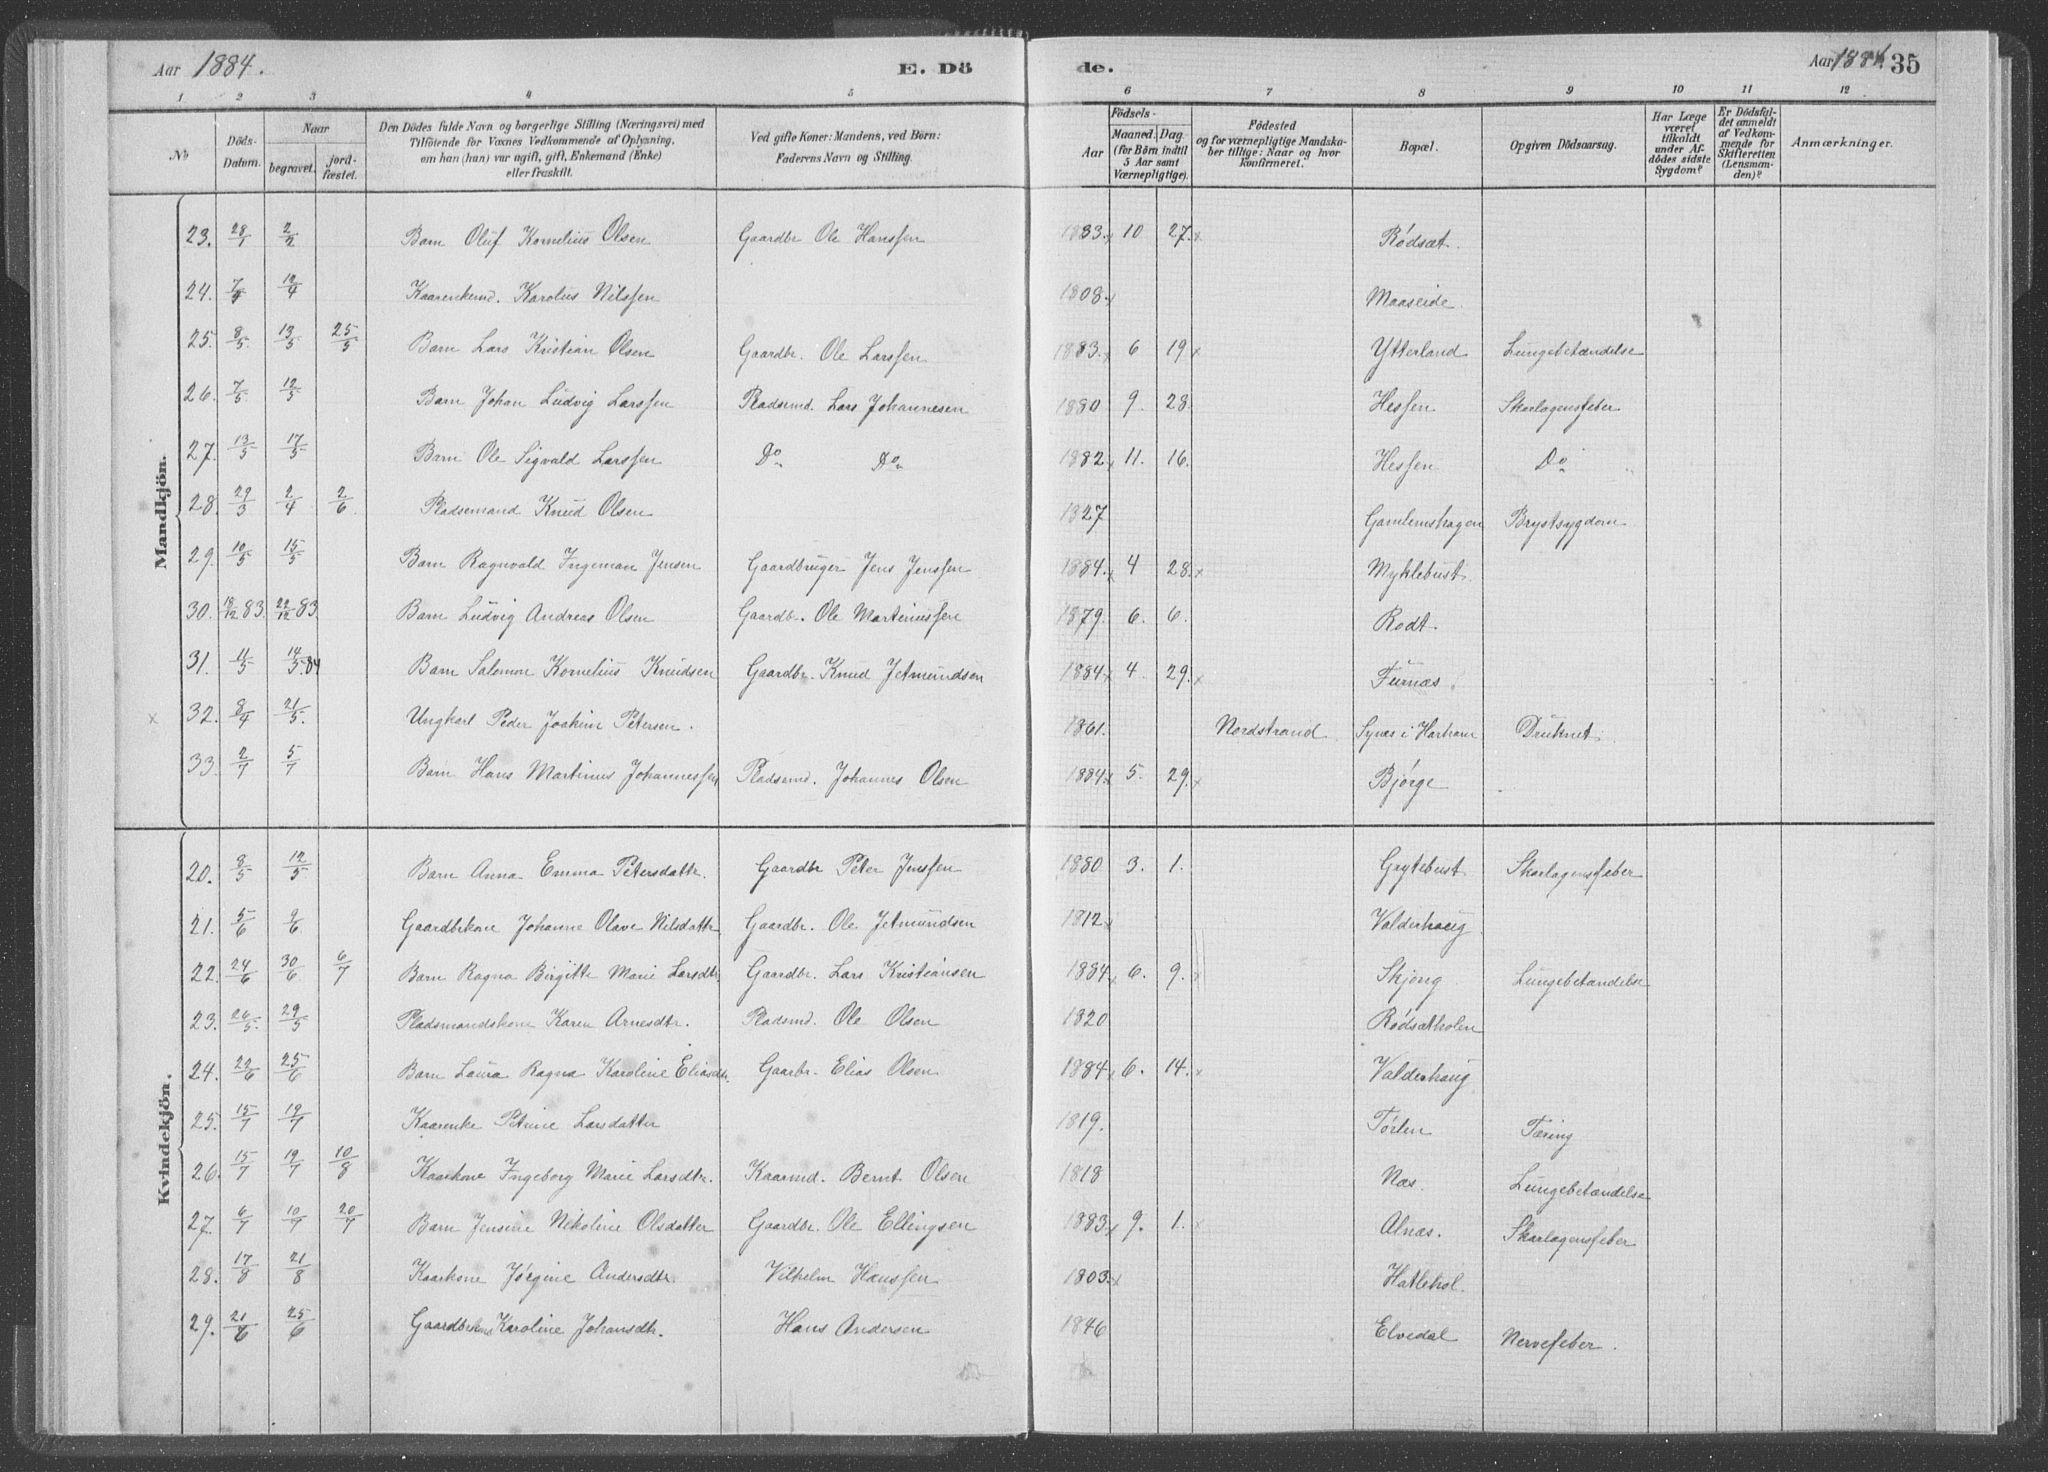 Aar 1884. E. Dö de. Aar 1884. 35
1 2 3 4 5 6 7 8 9 10 11 12
No Döds-Datum. Naar begravet. jord-fæstet. Den Dödes fulde Navn og borgerlige Stilling (Næringsvei) med Tilföiende for Voxnes Vedkommende af Oplysning, om han (hun) var ugift, gift, Enkemand (Enke) eller fraskilt. Ved gifte Koner: Mandens, ved Börn: Faderens Navn og Stilling. Födsels- Aar Maaned. Dag. (for Börn indtil 5 Aar samt Værnepligtige). Födested og for værnepligtige Mandskaber tillige: Naar og hvor konfirmeret. Bopæl. Opgiven Dödsaarsag. Har Læge været tilkaldt under Afdödes sidste Sygdom? Er Dödsfaldet anmeldt af Vedkommende for Skifteretten (Lensmanden)? Anmærkninger.
Mandkjön.
23. 28/1 2/2 Barn Oluf Kornelius Olsen Gaardbr Ole Hanssen 1883. 10 27. Rødsæt.
24. 7/4 12/4 Kaarenkemd. Karolus Nilssen 1808. Maaseide.
25. 8/5. 13/5 25/5 Barn Lars Kristian Olsen Gaardbr. Ole Larssen 1883. 6 19 Ytterland Lungebetændelse
26. 7/5 12/5 Barn Johan Ludvig Larssen Pladsmd. Lars Johannesen 1880 9. 28. Hessen Skarlagensfeber
27. 13/5 17/5 Barn Ole Sigvald Larssen Do Do 1882 11. 16. Hessen Do
28. 29/3 2/4 2/6 Pladsemand Knud Olsen 1827 Gamlemshagen Brystsygdom
29. 10/5 15/5 Barn Ragnvald Ingeman Jensen Gaardbruger Jens Jenssen 1884. 4 28. Myklebust.
30. 18/12 83. 22/12 83. Barn Ludvig Andreas Olsen Gaardbr. Ole Martinussen 1879. 6. 6. Rodt.
31. 11/5 14/5.84 Barn Salomon Kornelius Knudsen Gaardbr. Knud Jetmundsen 1884 4. 29. Furnæs.
x 32. 8/4 21/5. Ungkarl Peder Joakim Petersen. 1861. Nordstrand Synæs i Harham Druknet.
33. 2/7 5/7 Barn Hans Martinus Johannessen Pladsmd. Johannes Olsen 1884. 5. 29. Bjørge
Kvindekjön.
20. 8/5 12/5 Barn Anna Emma Petersdatr. Gaardbr Peter Jenssen 1880 3. 1. Grytebust Skarlagensfeber
21. 5/6 9/6 Gaardbrkone Johanne Olave Nilsdattr Gaardbr. Ole Jetmundsen 1812 Valderhaug.
22. 24/6 30/6 6/7 Barn Ragna Birgitte Marie Larsdtr. Gaardbr. Lars Kristiansen 1884 6. 9. Skjong. Lungebetændelse
23. 26/5. 29/5 Pladsmandskone Karen Arnesdtr. Pladsmd. Ole Olsen 1820 Rødsætholen
24. 22/6 25/6 Barn Laura Ragna Karoline Eliasdtr. Gaarbr. Elias Olsen 1884 6. 14. Valderhaug
25. 15/7 19/7 Kaarenke Petrine Larsdatter 1819. Tørlen Tæring
26. 15/7 19/7 10/8 Kaarkone Ingeborg Marie Larsdtr. Kaarmd. Bernt Olsen 1818 Næs. Lungebetændelse
27. 6/7 10/7 20/7 Barn Jensine Nikoline Olsdatter Gaardbr. Ole Ellingsen 1883 9. 1. Alnæs. Skarlagensfeber
28. 17/8 21/8 Kaarkone Jørgine Andersdtr. Vilhelm Hanssen 1803. Hatlehol.
29. 21/6 25/6 Gaardbrkone Karoline Johansdtr. Hans Andersen 1846 Elvedal Nervefeber.